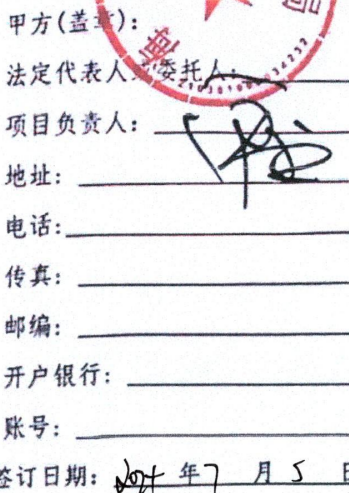 甲方(盖章):
法定代表人或委托人:
项目负责人:
地址:
电话:
传真:
邮编:
开户银行:
账号:
签订日期: 2024 年 7 月 5 日